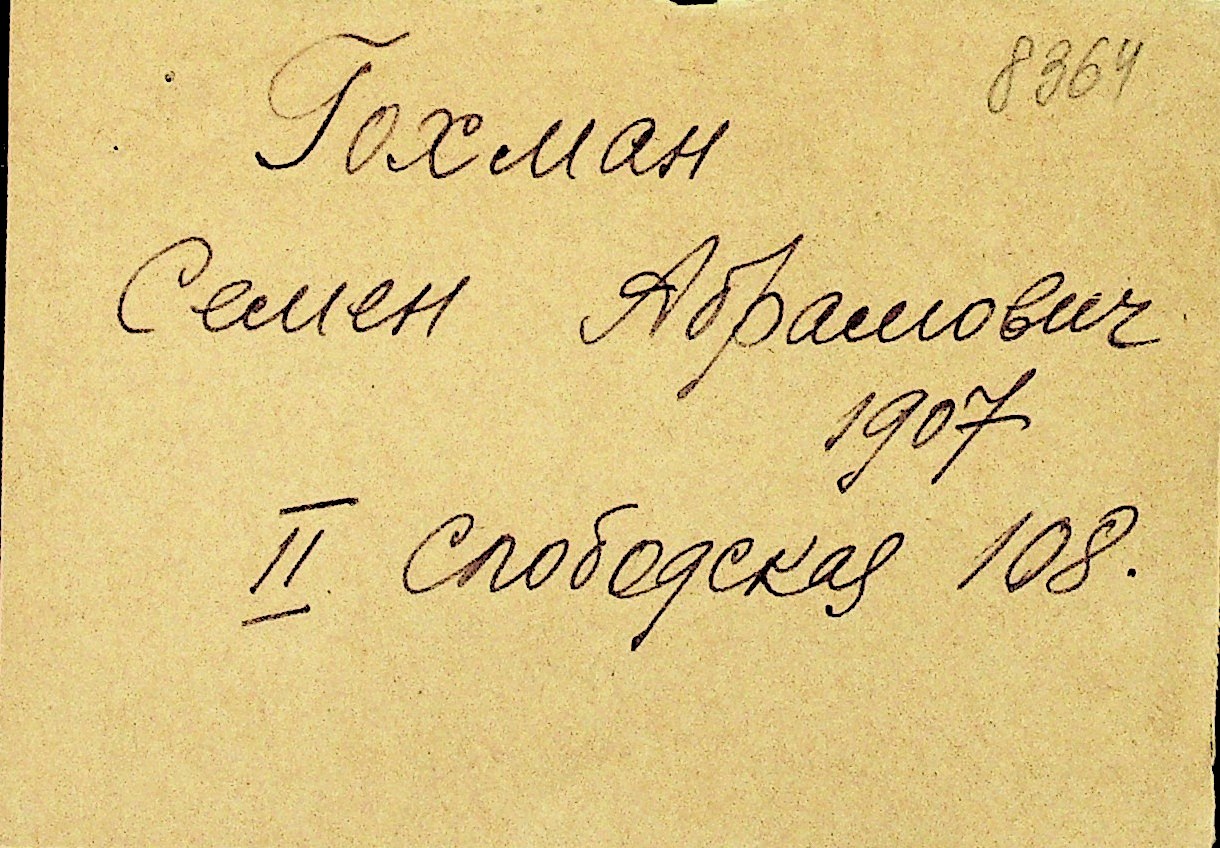 8364
Гохман
Семен Абрамович
1907
II Слободская 108.